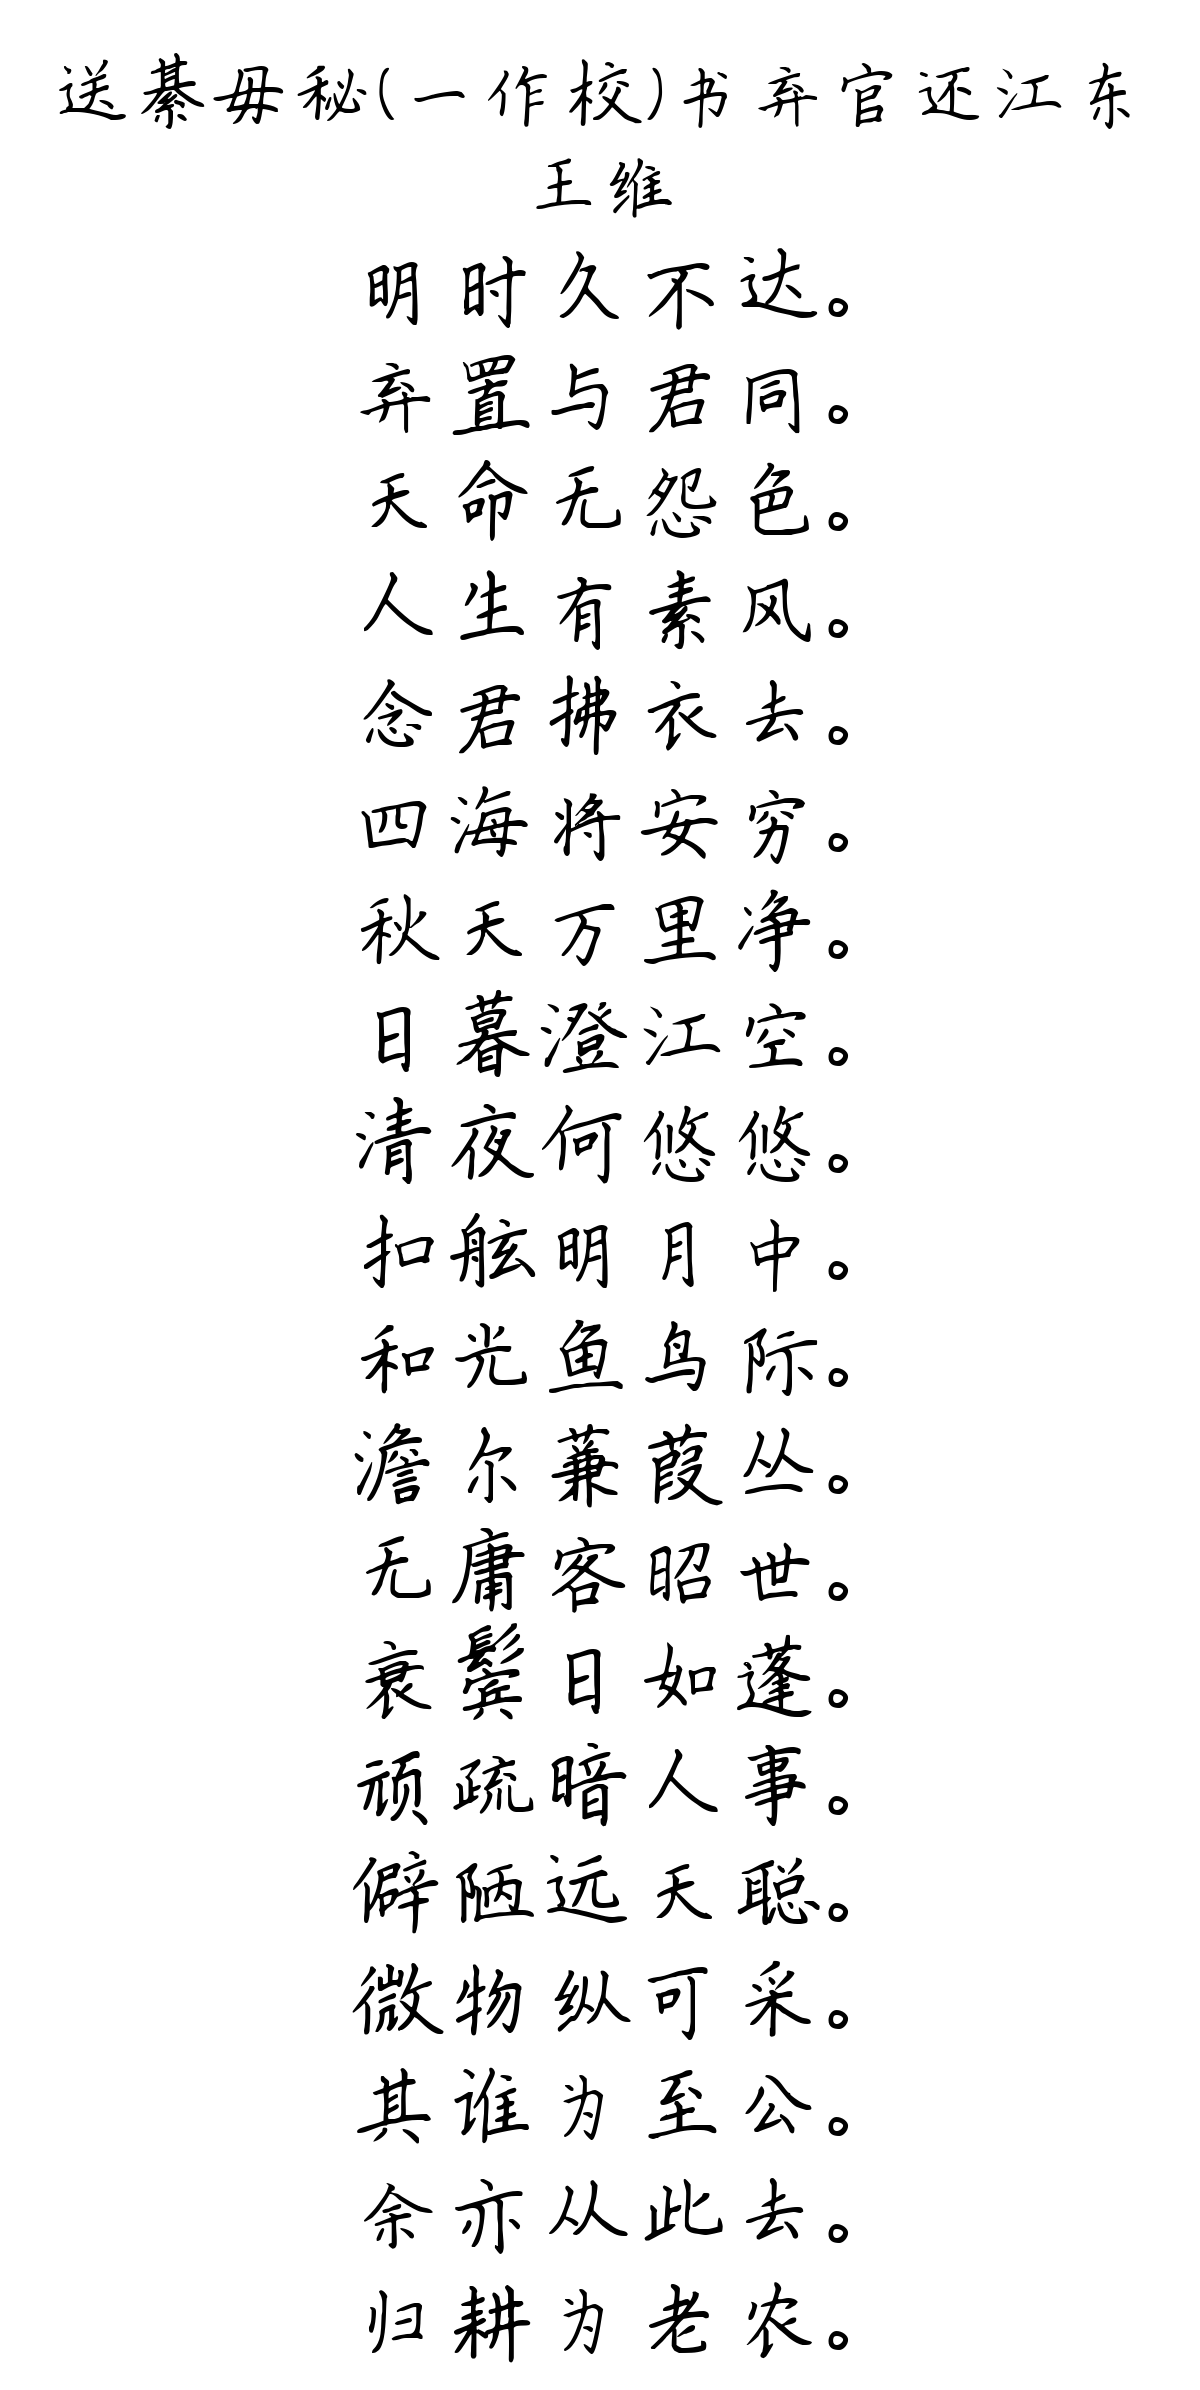 送綦毋秘(一作校)书弃官还江东
王维
明时久不达。
弃置与君同。
天命无怨色。
人生有素风。
念君拂衣去。
四海将安穷。
秋天万里净。
日暮澄江空。
清夜何悠悠。
扣舷明月中。
和光鱼鸟际。
澹尔蒹葭丛。
无庸客昭世。
衰鬓日如蓬。
顽疏暗人事。
僻陋远天聪。
微物纵可采。
其谁为至公。
余亦从此去。
归耕为老农。